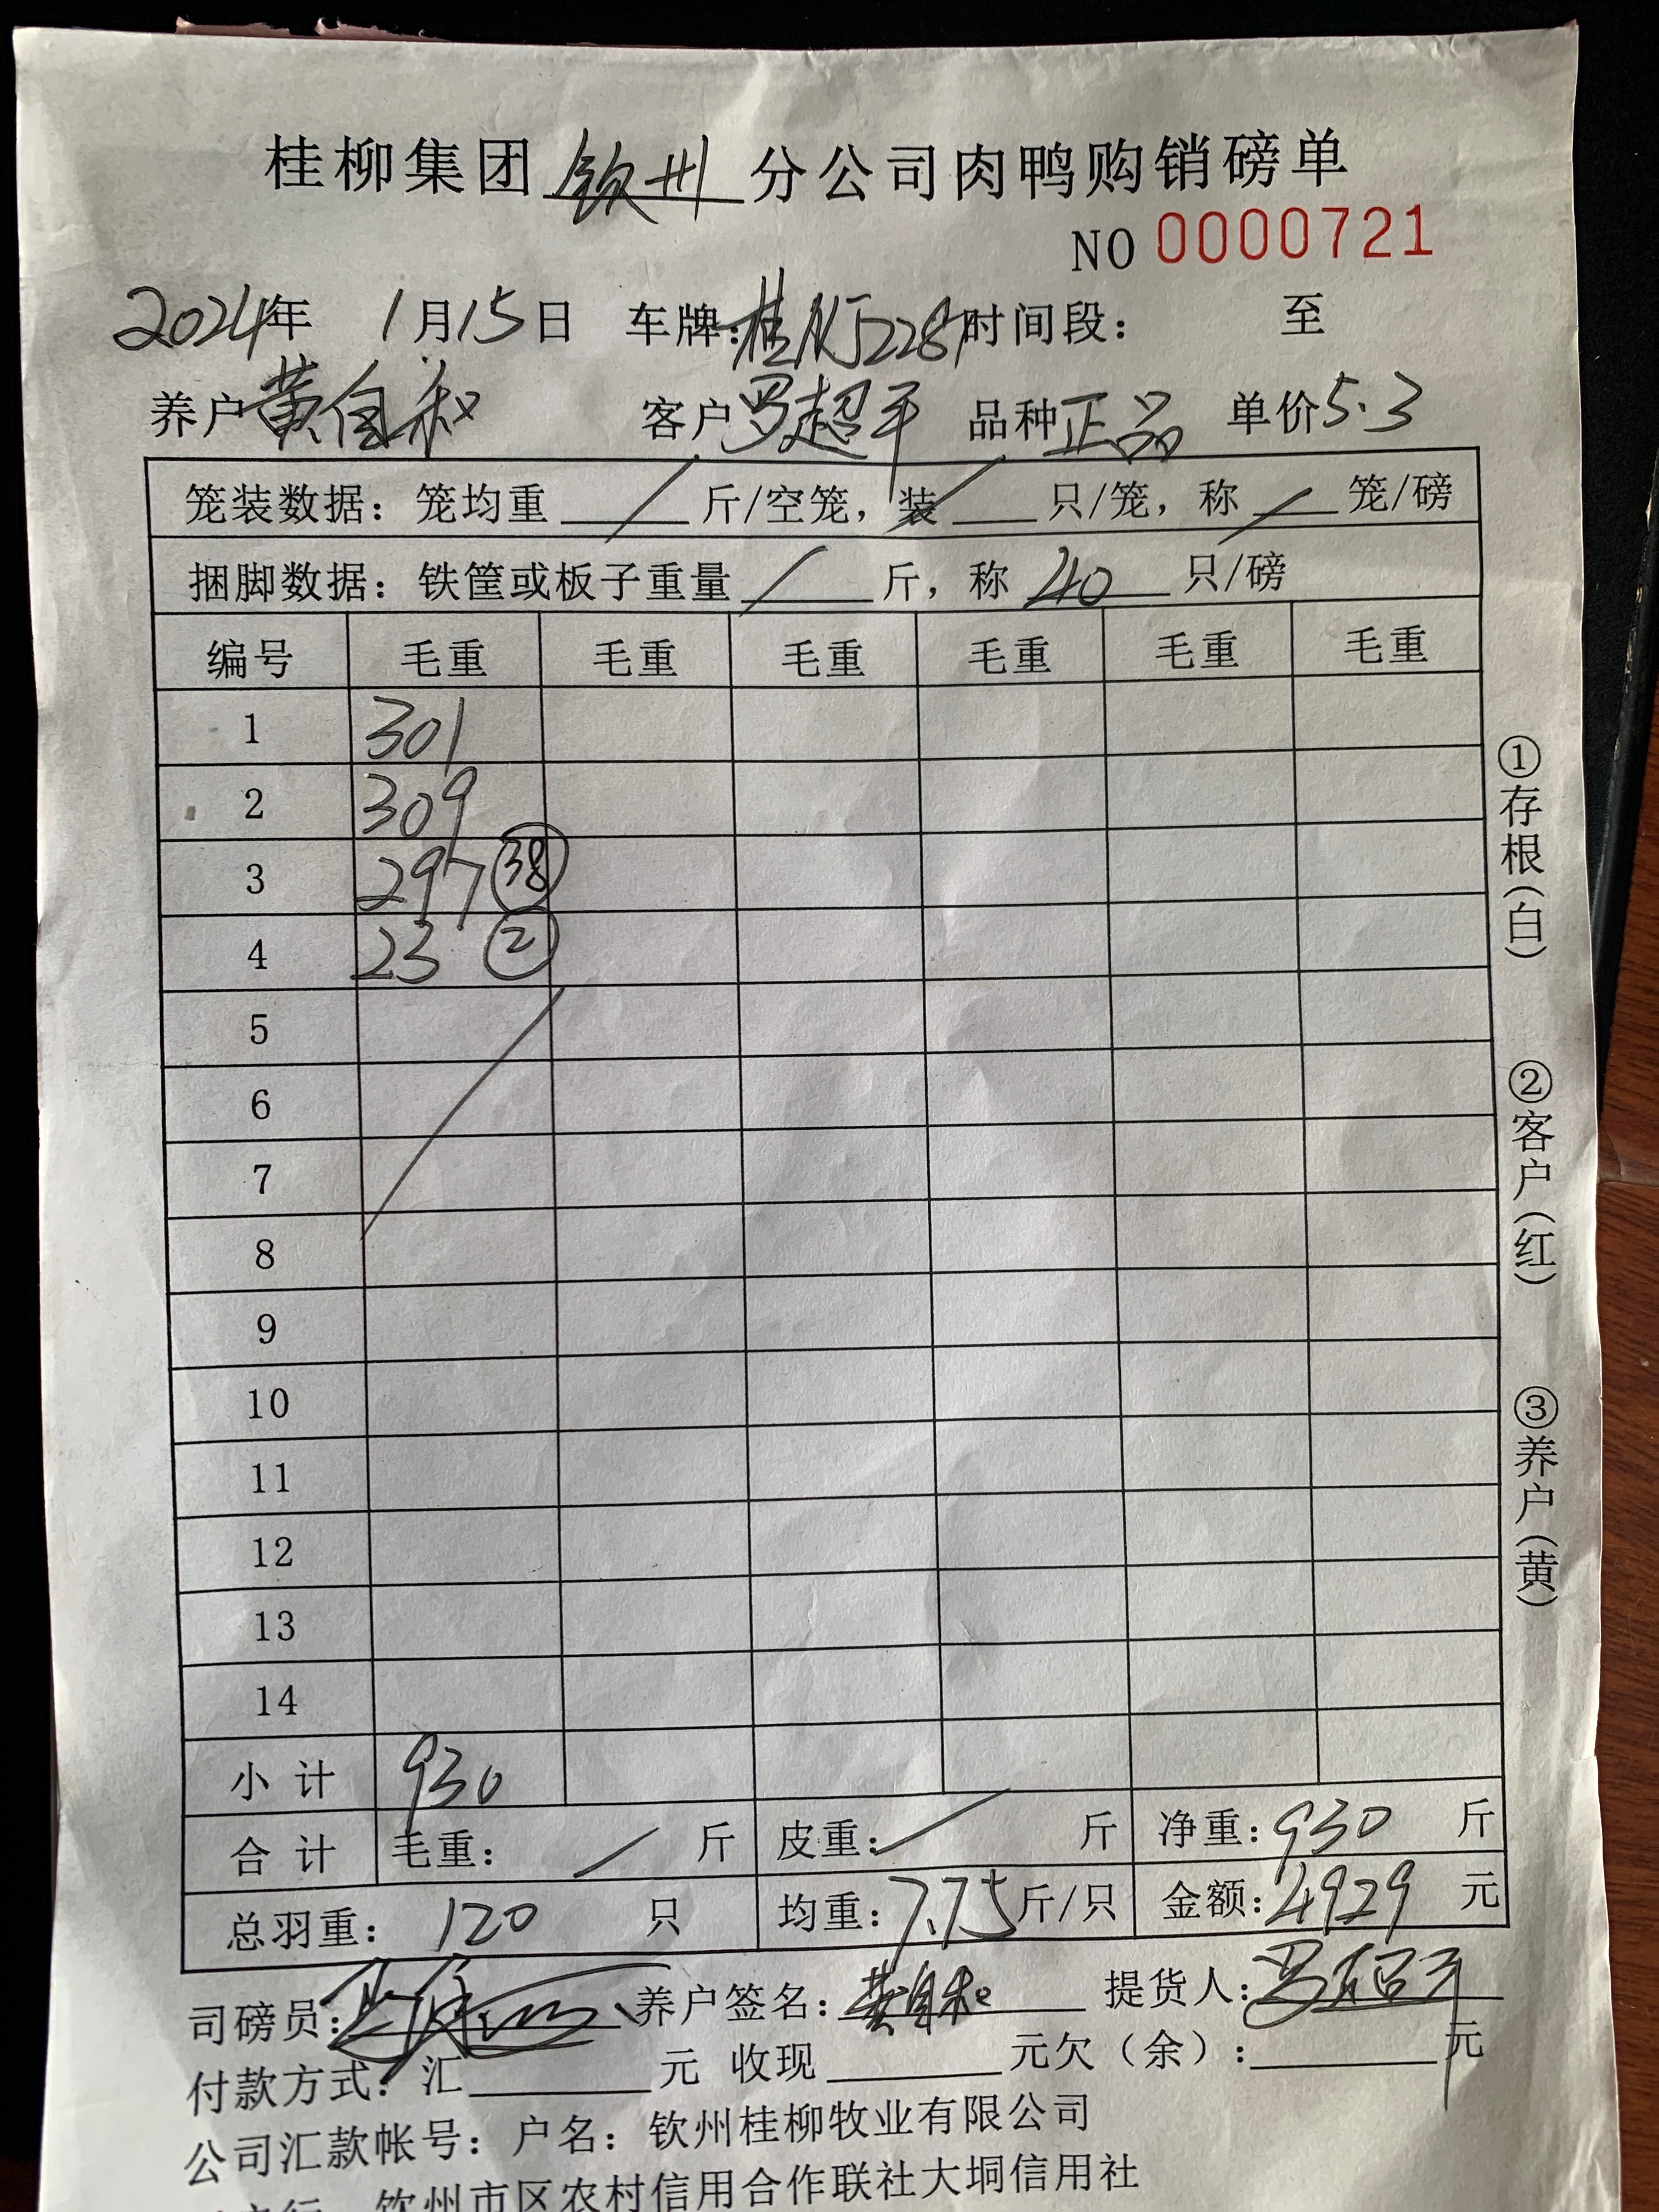 桂柳集团 钦州 分公司肉鸭购销磅单
NO 0000721
2024年 1月15日 车牌:桂NJ2281 时间段: 至
养户 黄自和 客户 罗超平 品种 正品 单价 5.3
笼装数据: 笼均重 / 斤/空笼, 装 / 只/笼, 称 / 笼/磅
捆脚数据: 铁筐或板子重量 / 斤, 称 40 只/磅
编号 毛重 毛重 毛重 毛重 毛重 毛重
1 301
2 309
3 297 38
4 23 2
5
6
7
8
9
10
11
12
13
14
小计 930
合计 毛重: / 斤 皮重: / 斤 净重: 930 斤
总羽重: 120 只 均重: 7.75 斤/只 金额: 4929 元
①存根(白) ②客户(红) ③养户(黄)
司磅员: 养户签名: 黄自和 提货人:
付款方式: 汇 元 收现 元欠(余): 元
公司汇款帐号: 户名: 钦州桂柳牧业有限公司
钦州市区农村信用合作联社大垌信用社